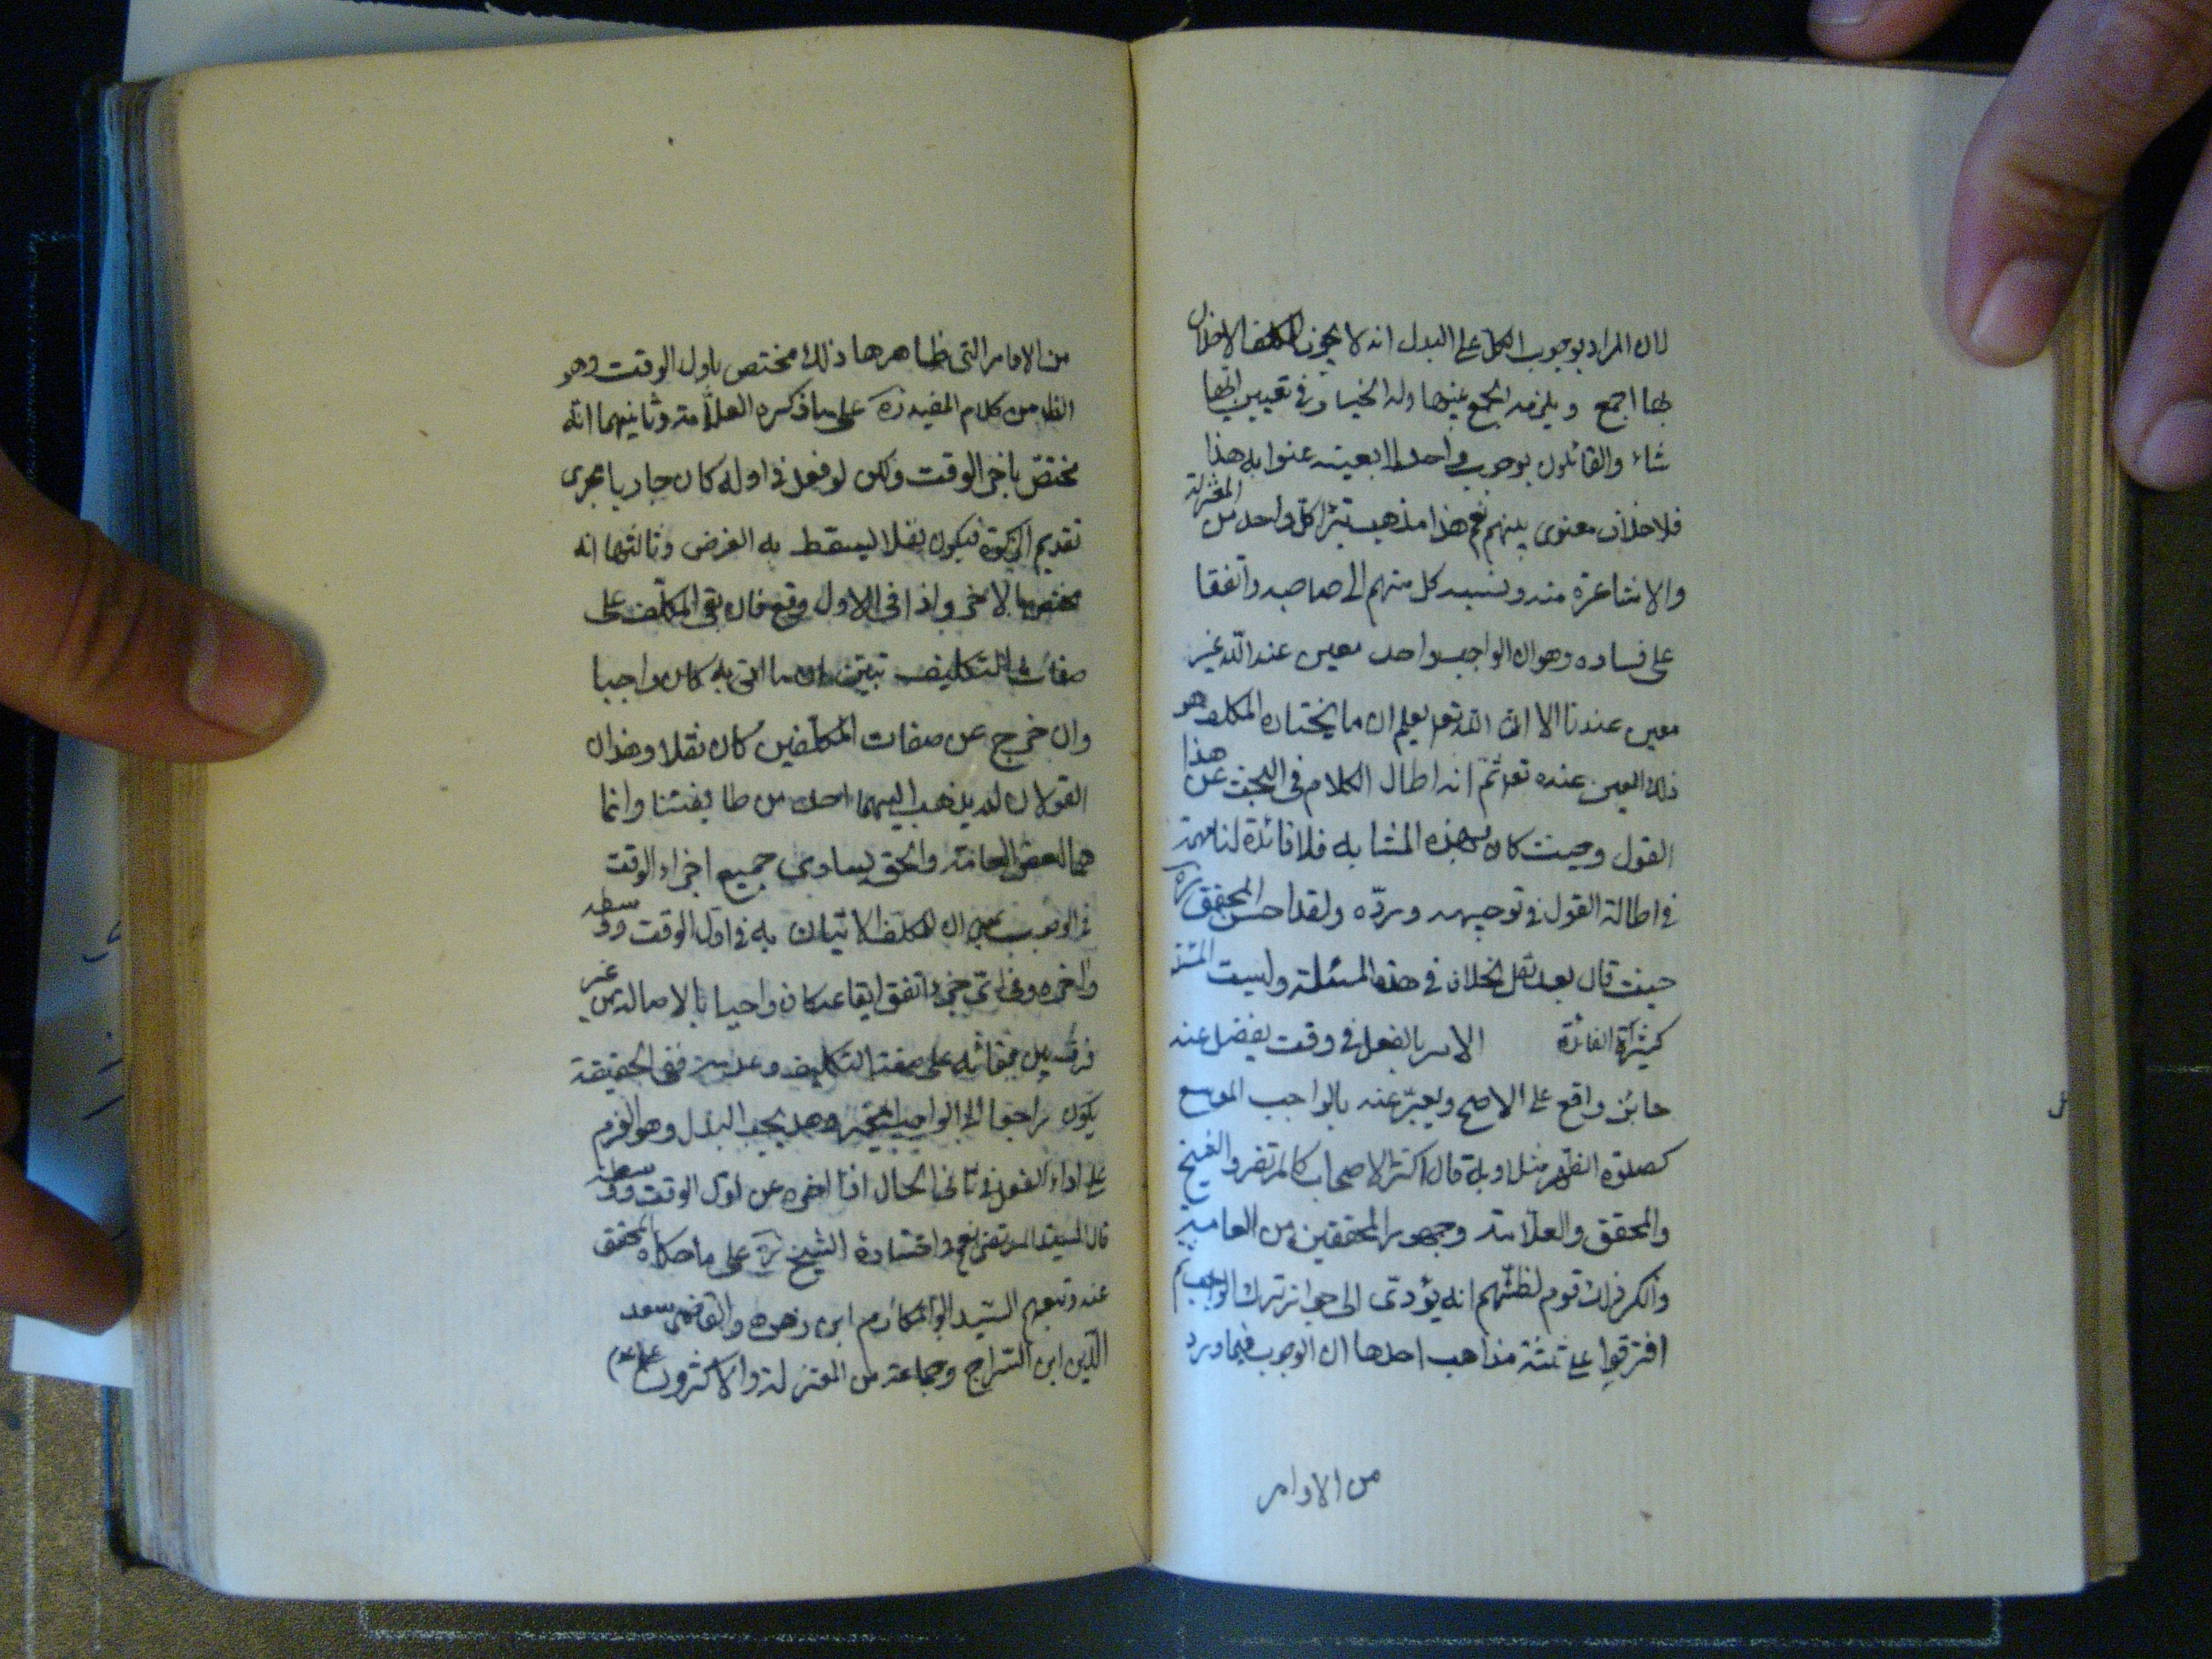 لان المراد بوجوب الكل على البدل انه لا يجوز للمكلف الاخلال
بها اجمع ويلزمه الجمع بينها وله الخيار في تعيين ايها
شاء والقائلون بوجوب واحد لا بعينه عنوا به هذا
فلا خلاف معنوى بينهم نعم هذا مذهب تبرا كل واحد من المعتزلة
والاشاعرة منه ونسبه كل منهم الى صاحبه واتفقا
على فساده وهو ان الواجب واحد معين عند الله غير
معين عندنا الا ان الله تعم يعلم ان ما يختاره المكلف هو
ذلك المعين عنده تعم ثم انه اطال الكلام في البحث عن هذا
القول وحيث كان بهذه المشابه فلا فائدة لنا مهمة
في اطالة القول في توجيهه ورده ولقد احسن المحقق ره
حيث قال بعد نقل الخلاف في هذه المسئلة وليست المسئلة
كثيرة الفائدة الامر بالفعل في وقت يفضل عنه
جائز واقع على الاصح ويعبر عنه بالواجب الموسع
كصلوة الظهر مثلا وبه قال اكثر الاصحاب كالمرتضى والشيخ
والمحقق والعلامة وجمهور المحققين من العامة
وانكر ذلك قوم لظنهم انه يؤدى الى جواز ترك الواجب ثم
افترقوا على ثلثة مذاهب احدها ان الوجوب فيما ورد
من الاوامر
من الاوامر التى ظاهرها ذلك مختص باول الوقت وهو
الظ من كلام المفيد ره على ما ذكره العلامة وثانيهما انه
مختص باخر الوقت ولكن لو فعل في اوله كان جاريا مجرى
تقديم الزكوة فيكون نفلا يسقط به الفرض وثالثها انه
مختص بالاخر واذا فى الاول وقع فان بقى المكلف على
صفات التكليف تبين ان ما اتى به كان واجبا
وان خرج عن صفات المكلفين كان نفلا وهذان
القولان لم يذهب اليهما احد من طايفتنا وانما
هما لبعض العامة والحق تساوى جميع اجزاء الوقت
في الوجوب بمعنى ان للمكلف الاتيان به في اول الوقت ووسطه
واخره وفى اى جزء اتفق ايقاعه كان واجبا بالاصالة من غير
فرق بين بقائه على صفة التكليف وعدمه ففى الحقيقة
يكون راجعا الى الواجب المخير وهل يجب البدل وهو العزم
على اداء الفعل في ثانى الحال اذا اخره عن اول الوقت ووسطه
قال السيد المرتضى نعم واختاره الشيخ ره على ما حكاه المحقق
عنه وتبعهم السيد ابو المكارم ابن زهره والقاضى سعد
الدين ابن البراج وجماعة من المعتزلة والاكثرون على عدم